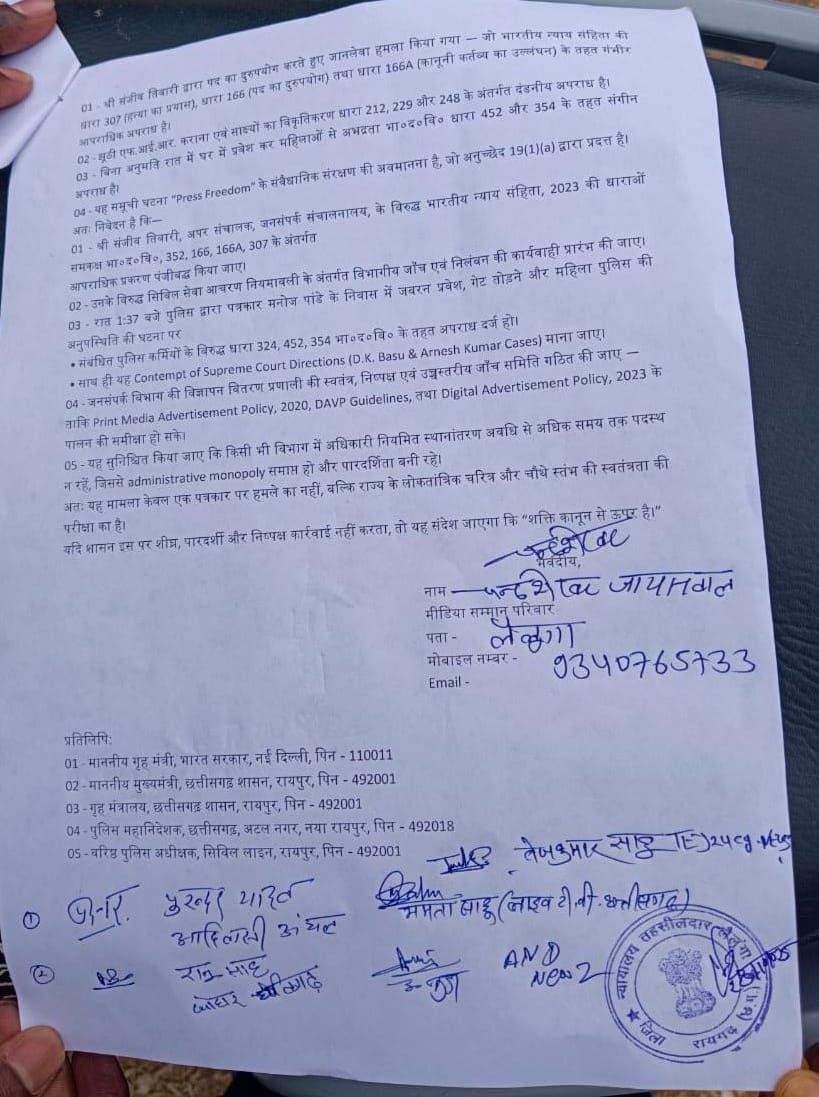 01 - श्री संजीव तिवारी द्वारा पद का दुरुपयोग करते हुए जानलेवा हमला किया गया — जो भारतीय न्याय संहिता की
धारा 307 (हत्या का प्रयास), धारा 166 (पद का दुरुपयोग) तथा धारा 166A (कानूनी कर्तव्य का उल्लंघन) के तहत गंभीर
आपराधिक अपराध है।
02 - झूठी एफ.आई.आर. कराना एवं साक्ष्यों का विकृतिकरण धारा 212, 229 और 248 के अंतर्गत दंडनीय अपराध है।
03 - बिना अनुमति रात में घर में प्रवेश कर महिलाओं से अभद्रता भा०द०वि० धारा 452 और 354 के तहत संगीन
अपराध है।
04 - यह समूची घटना "Press Freedom" के संवैधानिक संरक्षण की अवमानना है, जो अनुच्छेद 19(1)(a) द्वारा प्रदत्त है।
अतः निवेदन है कि—
01 - श्री संजीव तिवारी, अपर संचालक, जनसंपर्क संचालनालय, के विरुद्ध भारतीय न्याय संहिता, 2023 की धाराओं
समकक्ष भा०द०वि०, 352, 166, 166A, 307 के अंतर्गत
आपराधिक प्रकरण पंजीबद्ध किया जाए।
02 - उनके विरुद्ध सिविल सेवा आचरण नियमावली के अंतर्गत विभागीय जाँच एवं निलंबन की कार्यवाही प्रारंभ की जाए।
03 - रात 1:37 बजे पुलिस द्वारा पत्रकार मनोज पांडे के निवास में जबरन प्रवेश, गेट तोड़ने और महिला पुलिस की
अनुपस्थिति की घटना पर
• संबंधित पुलिस कर्मियों के विरुद्ध धारा 324, 452, 354 भा०द०वि० के तहत अपराध दर्ज हो।
• साथ ही यह Contempt of Supreme Court Directions (D.K. Basu & Arnesh Kumar Cases) माना जाए।
04 - जनसंपर्क विभाग की विज्ञापन वितरण प्रणाली की स्वतंत्र, निष्पक्ष एवं उच्चस्तरीय जाँच समिति गठित की जाए —
ताकि Print Media Advertisement Policy, 2020, DAVP Guidelines, तथा Digital Advertisement Policy, 2023 के
पालन की समीक्षा हो सके।
05 - यह सुनिश्चित किया जाए कि किसी भी विभाग में अधिकारी नियमित स्थानांतरण अवधि से अधिक समय तक पदस्थ
न रहें, जिससे administrative monopoly समाप्त हो और पारदर्शिता बनी रहे।
अतः यह मामला केवल एक पत्रकार पर हमले का नहीं, बल्कि राज्य के लोकतांत्रिक चरित्र और चौथे स्तंभ की स्वतंत्रता की
परीक्षा का है।
यदि शासन इस पर शीघ्र, पारदर्शी और निष्पक्ष कार्रवाई नहीं करता, तो यह संदेश जाएगा कि "शक्ति कानून से ऊपर है।"
भवदीय,
नाम — चन्द्रशेखर जायसवाल
मीडिया सम्मान परिवार
पता - लैलूंगा
मोबाइल नम्बर - 9340765733
Email -
प्रतिलिपि:
01 - माननीय गृह मंत्री, भारत सरकार, नई दिल्ली, पिन - 110011
02 - माननीय मुख्यमंत्री, छत्तीसगढ़ शासन, रायपुर, पिन - 492001
03 - गृह मंत्रालय, छत्तीसगढ़ शासन, रायपुर, पिन - 492001
04 - पुलिस महानिदेशक, छत्तीसगढ़, अटल नगर, नया रायपुर, पिन - 492018
05 - वरिष्ठ पुलिस अधीक्षक, सिविल लाइन, रायपुर, पिन - 492001
तेजकुमार साहू
① पुरन्दर यादव
ममता साहू (लाइव टी.वी. छत्तीसगढ़)
② राजू साहू
AND
न्यायालय तहसीलदार लैलूंगा
जिला रायगढ़